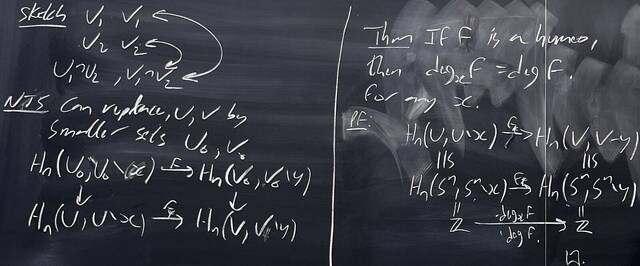 Sketch U₁ V₁
U₂ V₂
U₁∩U₂, V₁∩V₂
NTS Can replace, U, V by
smaller sets U₀, V₀
Hn(U₀, U₀\x) →F* Hn(V₀, V₀\y)
↓ ↓
Hn(U, U\x) →F* Hn(V, V\y)
Thm If F is a homeo,
then deg_x F = deg F.
for any x.
Pf: Hn(U, U\x) →F* Hn(V, V-y)
≅ ≅
Hn(Sⁿ, Sⁿ\x) →F* Hn(Sⁿ, Sⁿ\y)
= =
ℤ →·deg_x F ·deg F. ℤ
□.